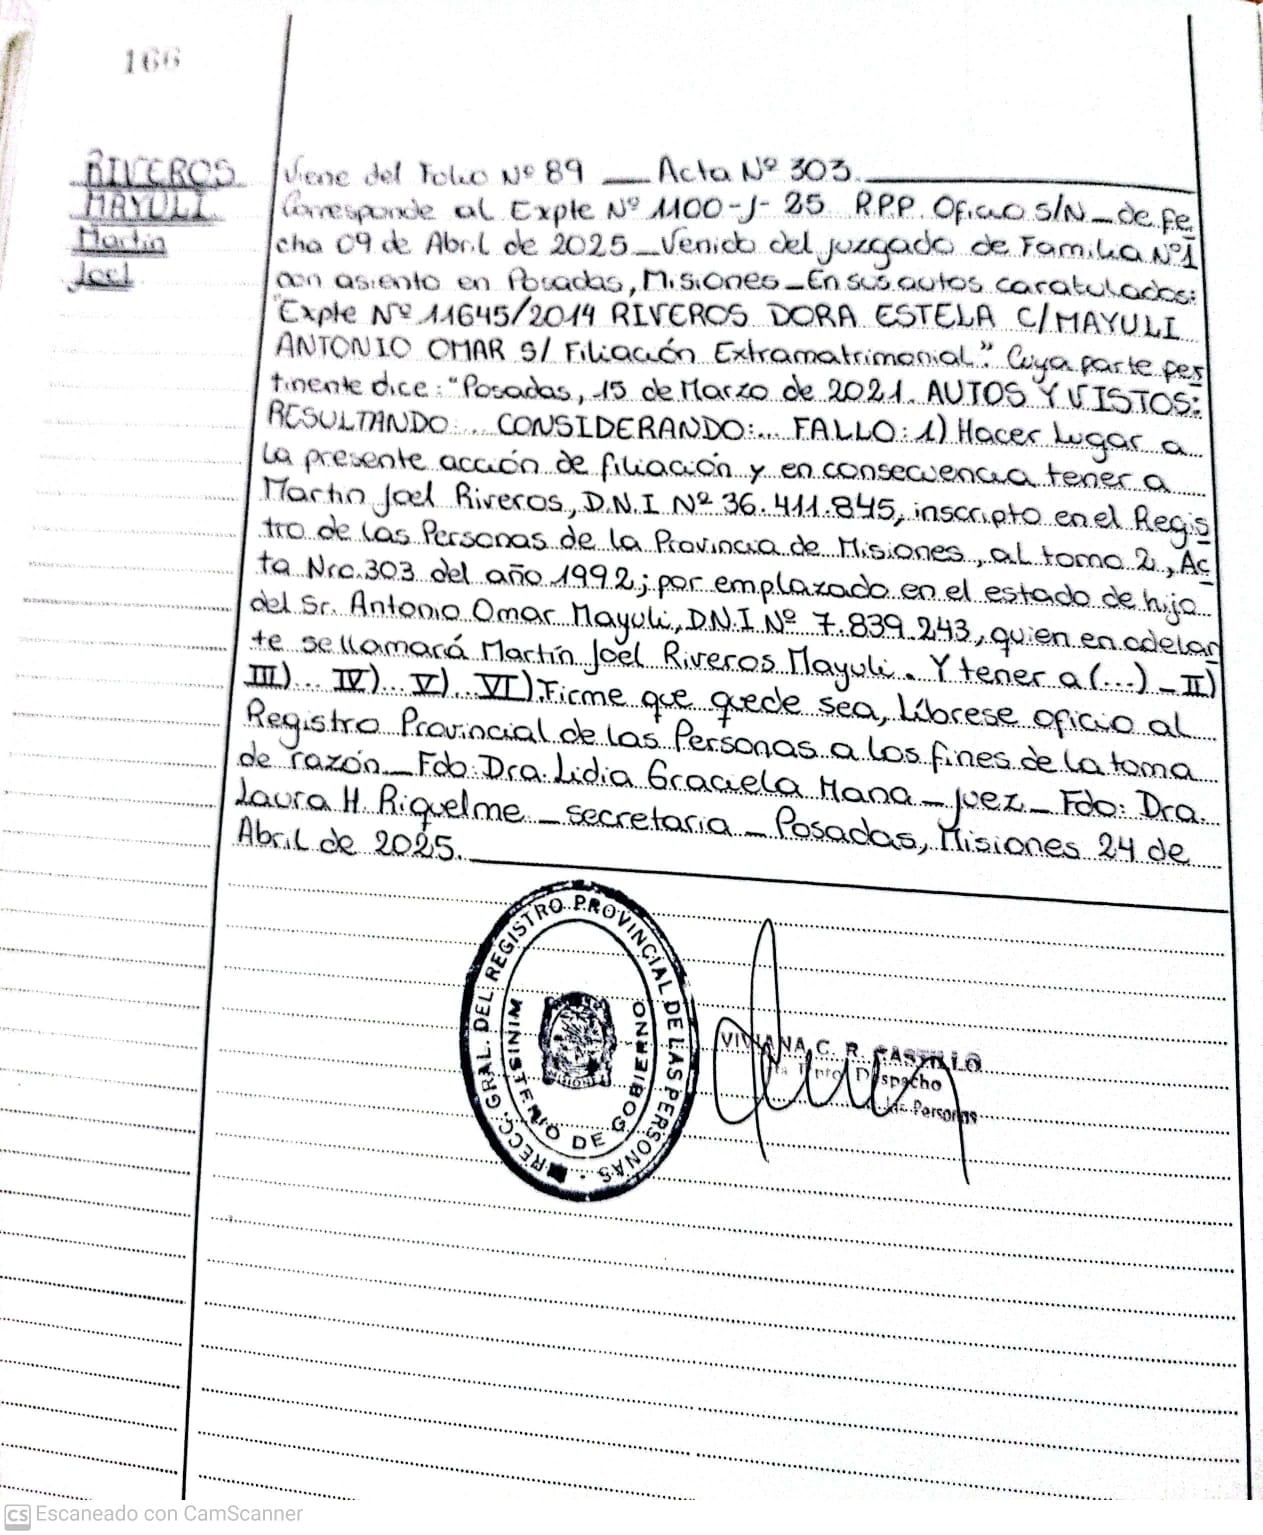 166
RIVEROS
MAYULI
Martin
Joel
Viene del Folio Nº 89 __ Acta Nº 303.
Corresponde al Expte Nº 1100-J-25 R.P.P. Oficio S/N_de fe
cha 09 de Abril de 2025_Venido del juzgado de Familia Nº1
con asiento en Posadas, Misiones_En sus autos caratulados:
"Expte Nº 11645/2014 RIVEROS DORA ESTELA C/MAYULI
ANTONIO OMAR S/ Filiación Extramatrimonial". Cuya parte per
tinente dice: "Posadas, 15 de Marzo de 2021. AUTOS Y VISTOS:
RESULTANDO:... CONSIDERANDO:... FALLO: 1) Hacer lugar a
la presente acción de filiación y en consecuencia tener a
Martin Joel Riveros, D.N.I Nº 36.411.845, inscripto en el Regis
tro de las Personas de la Provincia de Misiones, al tomo 2, Ac
ta Nro.303 del año 1992; por emplazado en el estado de hijo
del Sr. Antonio Omar Mayuli, D.N.I Nº 7.839.243, quien en adelan
te se llamará Martín Joel Riveros Mayuli. Y tener a (...)_II)
III)... IV)... V)... VI) Firme que quede sea, Líbrese oficio al
Registro Provincial de las Personas a los fines de la toma
de razón_Fdo: Dra. Lidia Graciela Mana_Juez_Fdo: Dra.
Laura H. Riquelme_secretaria_Posadas, Misiones 24 de
Abril de 2025.
DIRECC. GRAL. DEL REGISTRO PROVINCIAL DE LAS PERSONAS
MINISTERIO DE GOBIERNO
MISIONES
VIVIANA C. R. CASTILLO
Despacho
Personas
CS Escaneado con CamScanner